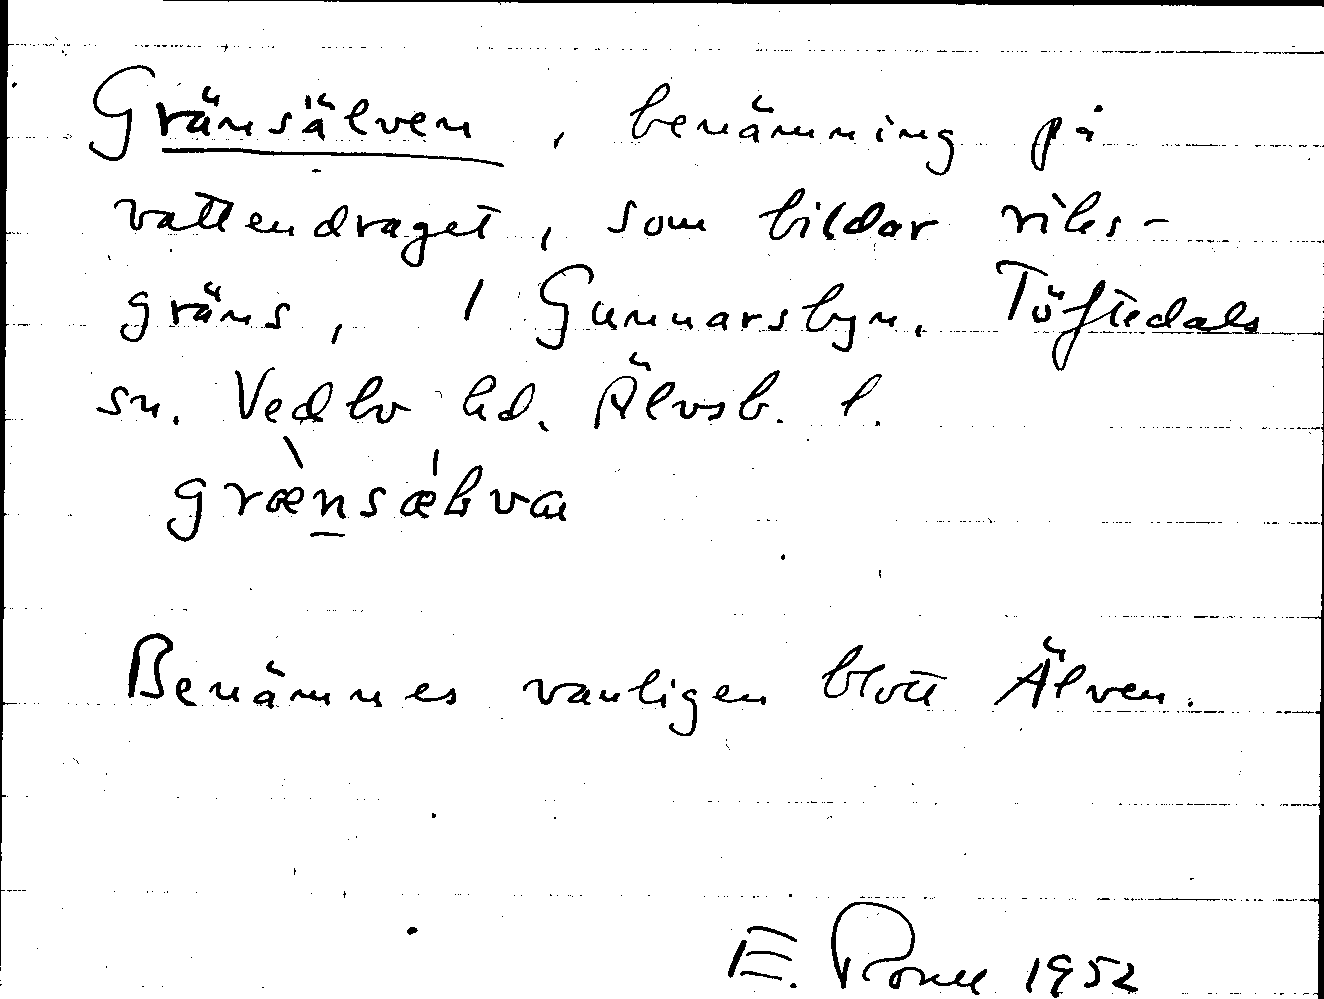 Gränsälven, benämning på
vattendraget, som bildar riks-
gräns, / Gunnarsbyn, Töftedals
sn. Vedbo hd. Älvsb. l.
grænsælva
Benämnes vanligen blott Älven.
E. 1952